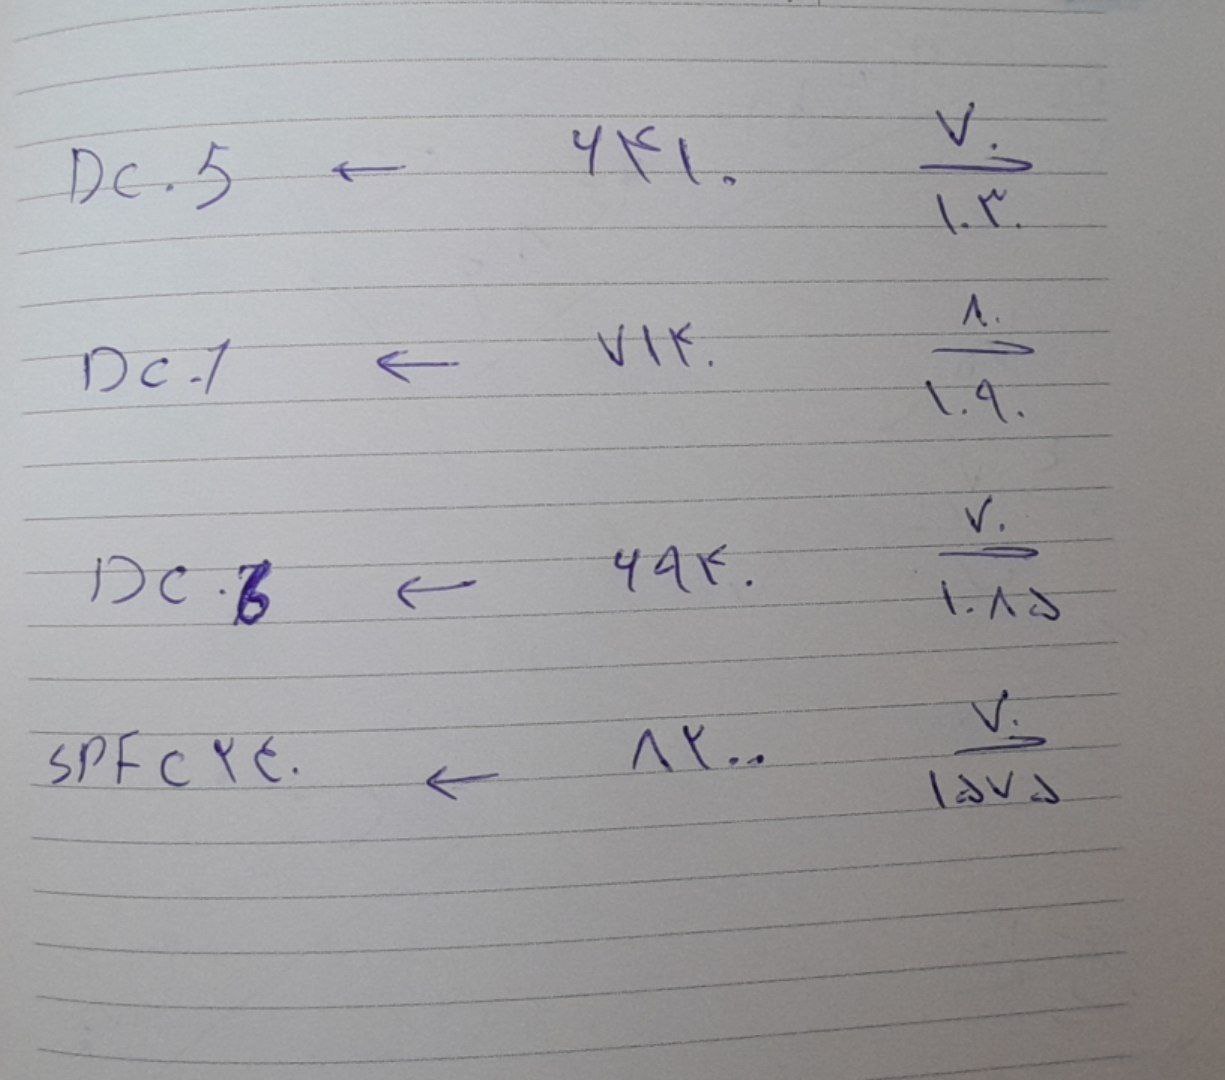 DC.5 ← ۶۴۱۰ ۷۰/۱۰۳۰
DC.1 ← ۷۱۴۰ ۸۰/۱۰۹۰
DC.6 ← ۶۹۴۰ ۷۰/۱۰۸۵
SPFC ۲۴۰ ← ۸۲۰۰ ۷۰/۱۵۷۵